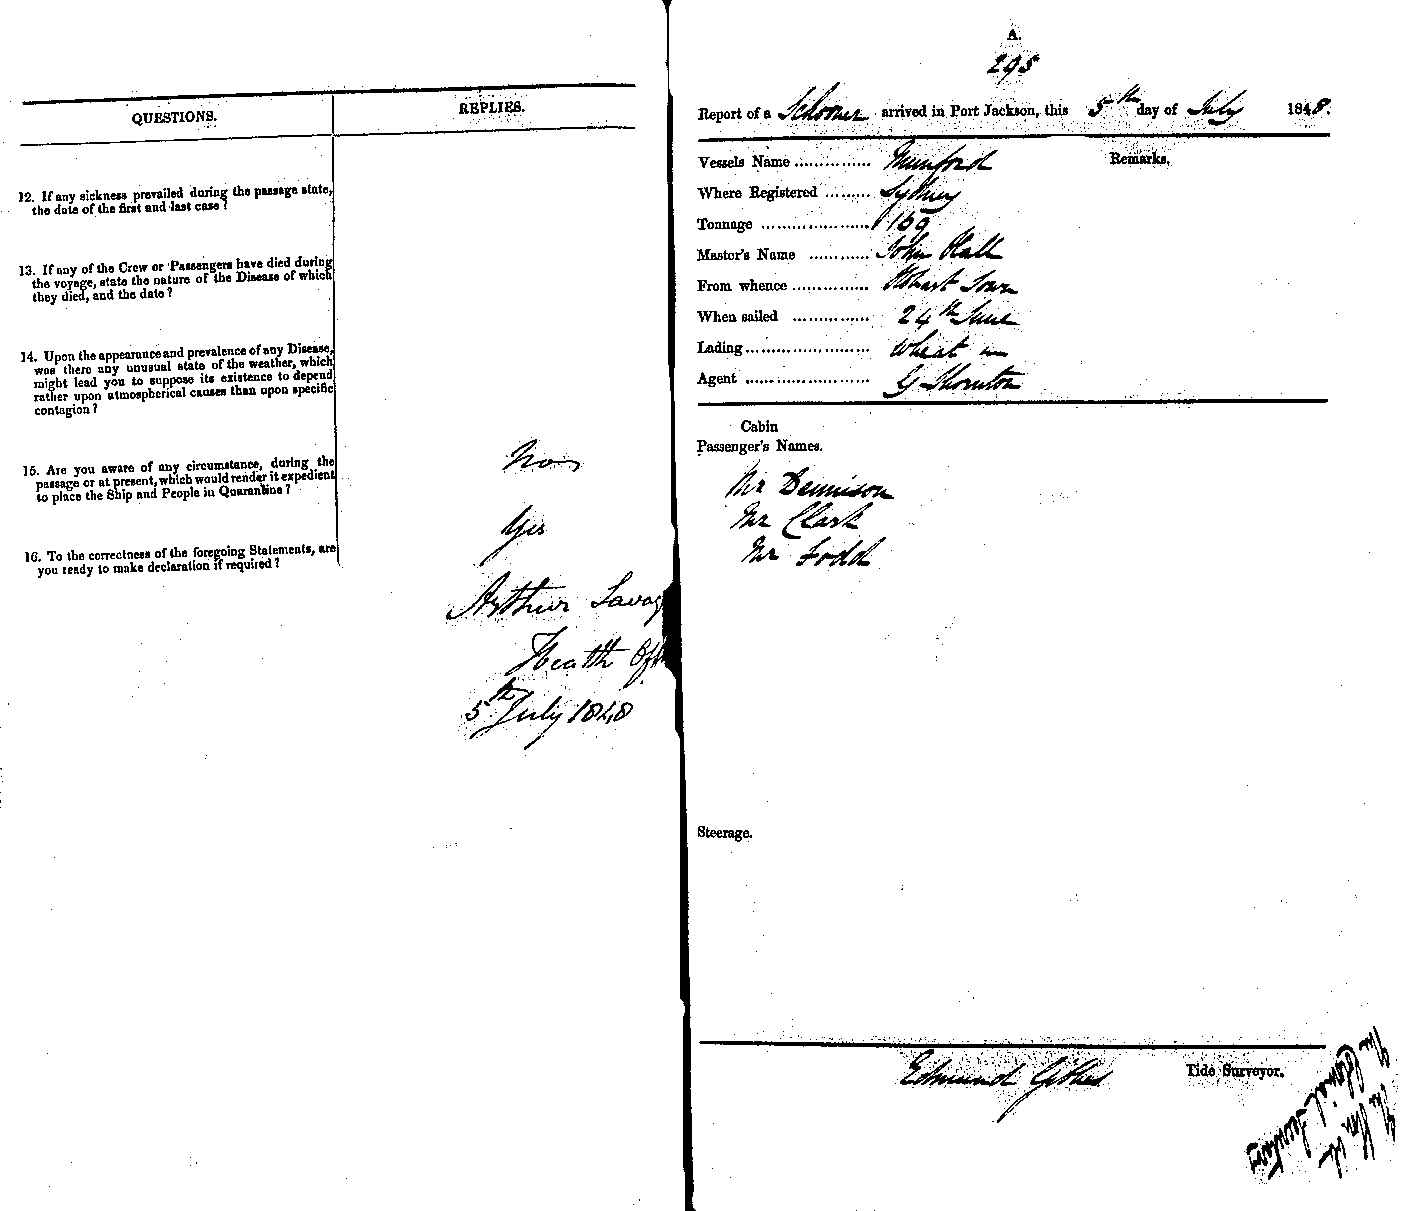 QUESTIONS.
REPLIES.
12. If any sickness prevailed during the passage state,
the date of the first and last case?
13. If any of the Crew or Passengers have died during
the voyage, state the nature of the Disease of which
they died, and the date?
14. Upon the appearance and prevalence of any Disease,
was there any unusual state of the weather, which
might lead you to suppose its existence to depend
rather upon atmospherical causes than upon specific
contagion?
15. Are you aware of any circumstance, during the
passage or at present, which would render it expedient
to place the Ship and People in Quarantine?
No
16. To the correctness of the foregoing Statements, are
you ready to make declaration if required?
Yes
Arthur Savag
Health Off
5th July 1848
A.
295
Report of a Schooner arrived in Port Jackson, this 5th day of July 1848.
Vessels Name .............. Munford
Remarks.
Where Registered ......... Sydney
Tonnage ..................... 159
Master's Name ........... John Hall
From whence .............. Hobart Town
When sailed .............. 24th June
Lading........................ Wheat
Agent ........................ G Thornton
Cabin
Passenger's Names.
Mr Dennison
Mr Clark
Mr Todd
Steerage.
Edmund Gibbes Tide Surveyor.
The Hon the
The Colonial Secretary